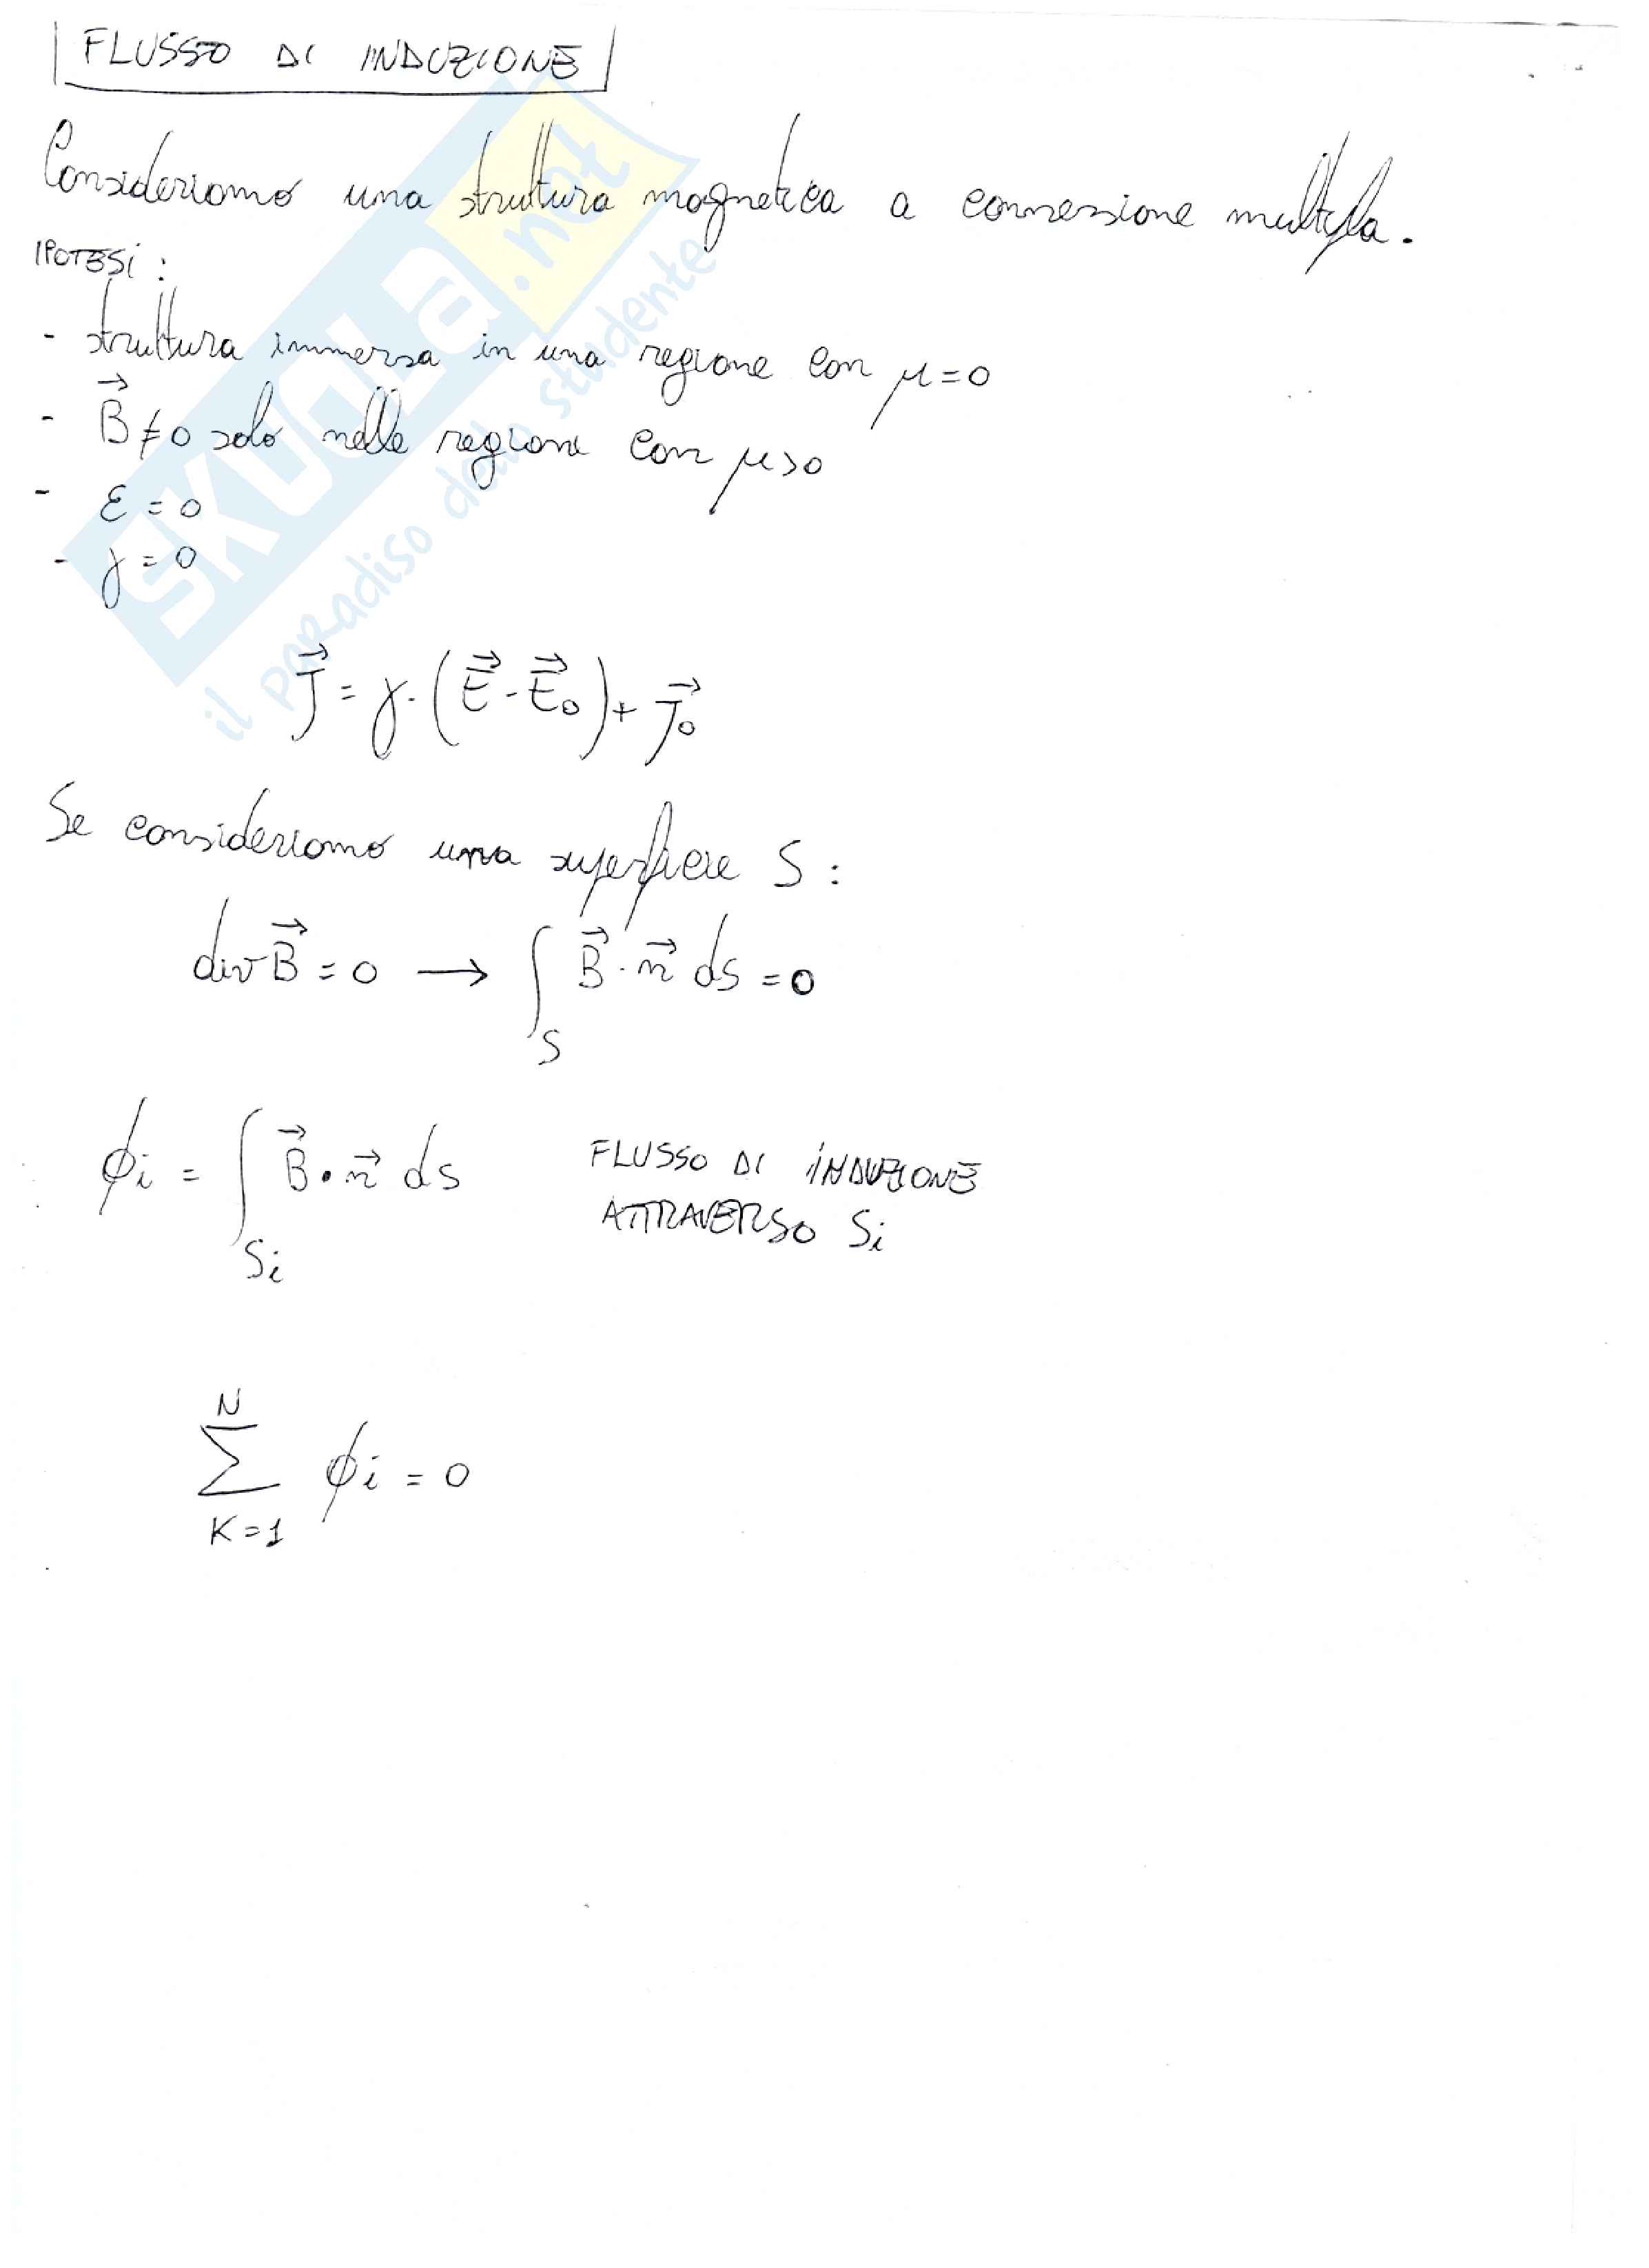 FLUSSO DI INDUZIONE
Consideriamo una struttura magnetica a connessione multipla.
IPOTESI:
- struttura immersa in una regione con μ=0
- B⃗≠0 solo nelle regioni con μ>0
- ε=0
- γ=0
J⃗ = γ·(E⃗-E⃗₀)+J⃗₀
Se consideriamo una superficie S:
div B⃗ = 0 → ∫_S B⃗·n⃗ ds = 0
ϕi = ∫_Si B⃗·n⃗ ds FLUSSO DI INDUZIONE
ATTRAVERSO Si
∑_{K=1}^{N} ϕi = 0
SKUOLA.net
il paradiso dello studente